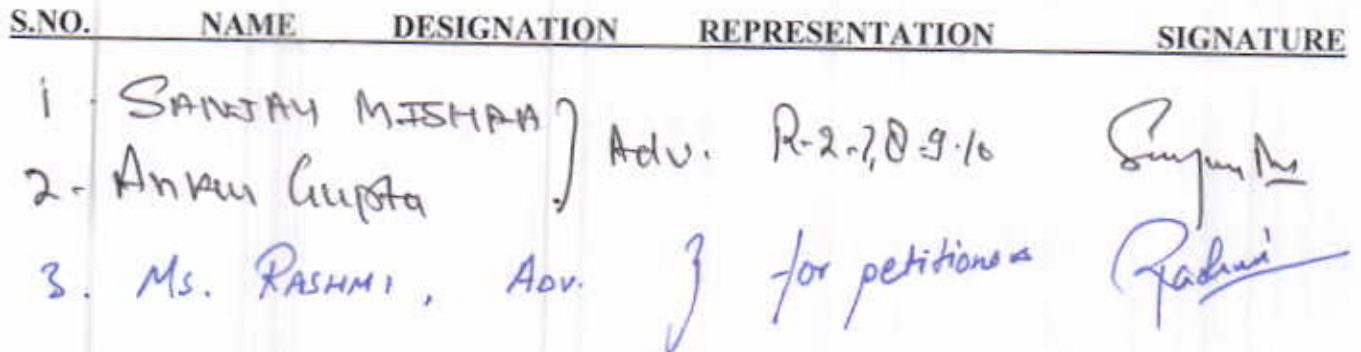 S.NO. NAME DESIGNATION REPRESENTATION SIGNATURE
1 - SANJAY MISHRA } Adv. R-2-7,8-9-10
2 - Gupta
3. Ms. RASHMI, ADV. } for petitioner Rashmi